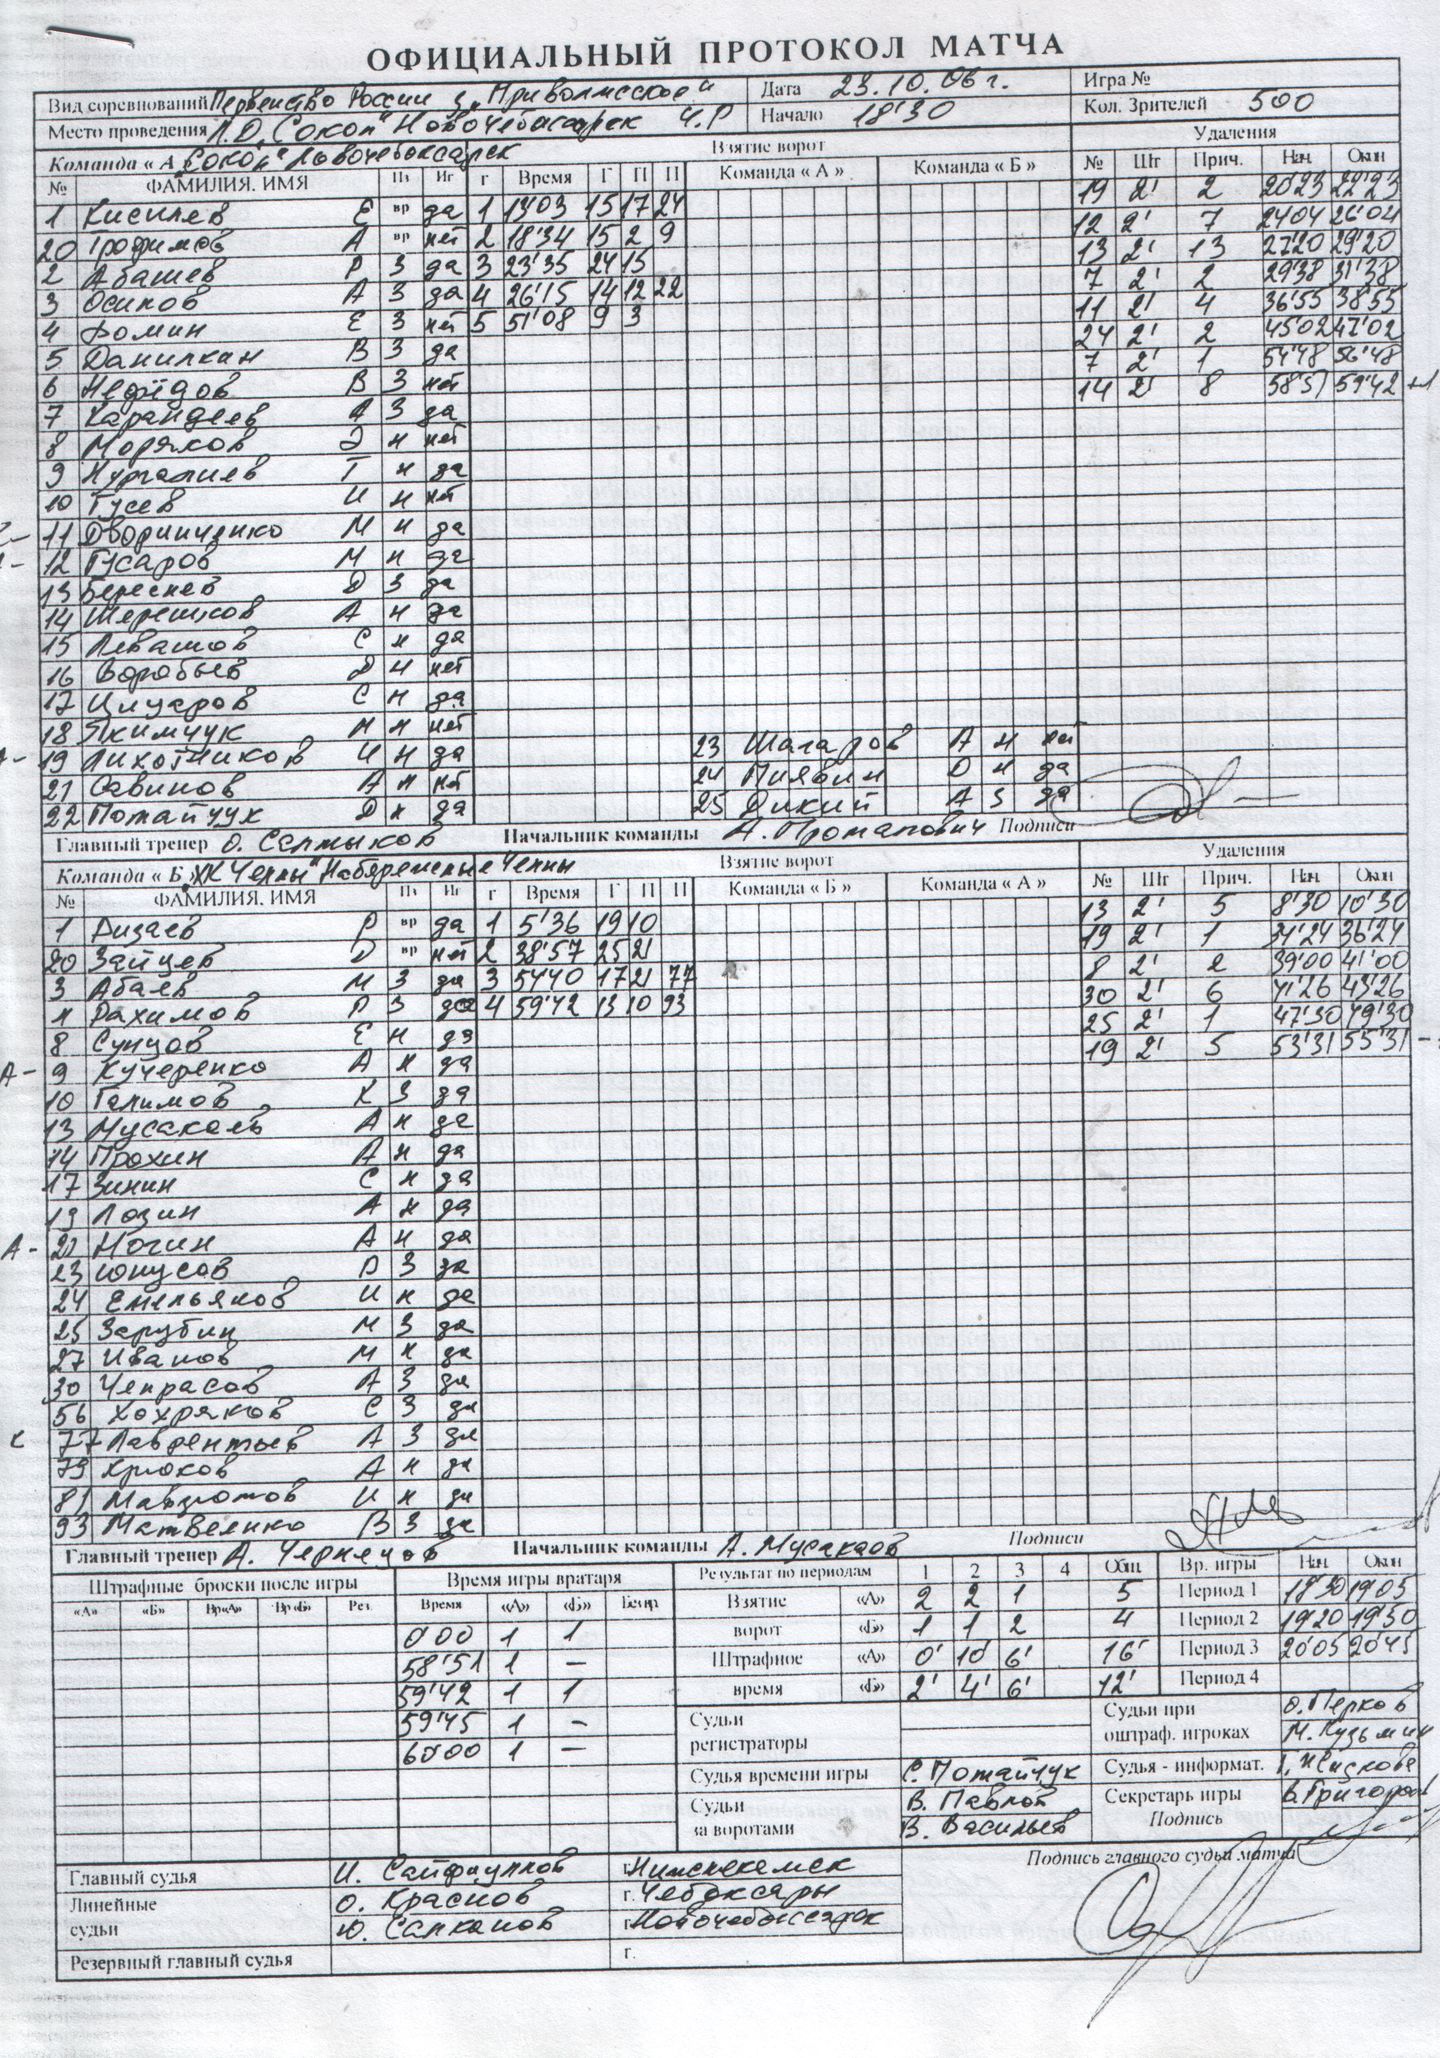 ОФИЦИАЛЬНЫЙ ПРОТОКОЛ МАТЧА
Вид соревнований Первенство России з. „Приволжское" Дата 23.10.06 г. Игра №
Место проведения Л.Д. „Сокол" Новочебоксарск Ч.Р Начало 18'30 Кол. Зрителей 500
Команда « А „Сокол" Новочебоксарск Взятие ворот Удаления
№ ФАМИЛИЯ. ИМЯ Пз Иг Г Время Г П П Команда « А » Команда « Б » № Шт Прич. Нач. Окон
1 Кисилев Е вр да 1 13'03 15 17 24 19 2' 2 20'23 22'23
20 Трофимов А вр нет 2 18'34 15 2 9 12 2' 7 24'04 26'04
2 Абашев Р З да 3 23'35 24 15 13 2' 13 27'20 29'20
3 Осипов А З да 4 26'15 14 12 22 7 2' 2 29'38 31'38
4 Фомин Е З нет 5 51'08 9 3 11 2' 4 36'55 38'55
5 Данилкин В З да 24 2' 2 45'02 47'02
6 Нефёдов В З нет 7 2' 1 54'48 56'48
7 Карандеев А З да 14 2' 8 58'51 59'42
8 Моряков Д н нет
9 Нургалиев Т н да
10 Гусев И н нет
11 Дворниченко М н да
12 Гусаров М н да
13 Береснев Д З да
14 Терешков А н да
15 Левашов С н да
16 Воробьев Д н нет
17 Цицаров С н да
18 Якимчук н нет
А- 19 Лихотников И н да 23 Шагаров А н нет
21 Савинов А н нет 24 Пиявин О н да
22 Потайчук Д н да 25 Дикий А З да
Главный тренер О. Селтыков Начальник команды А. Протапович Подписи
Команда « Б » „ХК Челны" Набережные Челны Взятие ворот Удаления
№ ФАМИЛИЯ. ИМЯ Пз Иг Г Время Г П П Команда « Б » Команда « А » № Шт Прич. Нач. Окон
1 Ризаев Р вр да 1 5'36 19 10 13 2' 5 8'30 10'30
20 Зайцев D вр нет 2 38'57 25 21 19 2' 1 34'24 36'24
3 Абаев М З да 3 54'40 17 21 77 8 2' 2 39'00 41'00
4 Рахимов Р З да 4 59'42 13 10 93 30 2' 6 41'26 43'26
8 Сунцов Е н да 25 2' 1 47'30 49'30
А- 9 Кучеренко А н да 19 2' 5 53'31 55'31
10 Галимов К З да
13 Мусакаев А н да
14 Прохин А н да
17 Зинин С н да
19 Лозин А н да
А- 21 Ногин А н да
23 Юнусов Р З да
24 Емельянов И н да
25 Зарубин М З да
27 Иванов М н да
30 Чепрасов А З да
56 Хохряков С З да
К 77 Лаврентьев А З да
79 Крюков А н да
81 Мавзютов И н да
93 Матвеенко В З да
Главный тренер А. Чернецов Начальник команды А. Мусакаев Подписи
Штрафные броски после игры Время игры вратаря Результат по периодам 1 2 3 4 Общ. Вр. игры Нач. Окон
«А» «Б» Вр«А» Вр«Б» Рез. Время «А» «Б» Взятие «А» 2 2 1 5 Период 1 18'30 19'05
0'00 1 1 ворот «Б» 1 1 2 4 Период 2 19'20 19'50
58'51 1 – Штрафное «А» 0' 10' 6' 16' Период 3 20'05 20'45
59'42 1 1 время «Б» 2' 4' 6' 12' Период 4
59'45 1 – Судьи Судьи при О. Перков
60'00 1 – регистраторы оштраф. игроках М. Кузьмин
Судья времени игры С. Потайчук Судья - информат.
Судьи В. Павлов Секретарь игры
за воротами В. Васильев Подпись
Главный судья И. Сайфуллов г. Нижнекамск Подпись главного судьи матча
Линейные О. Краснов г. Чебоксары
судьи Ю. Салканов г. Новочебоксарск
Резервный главный судья г.